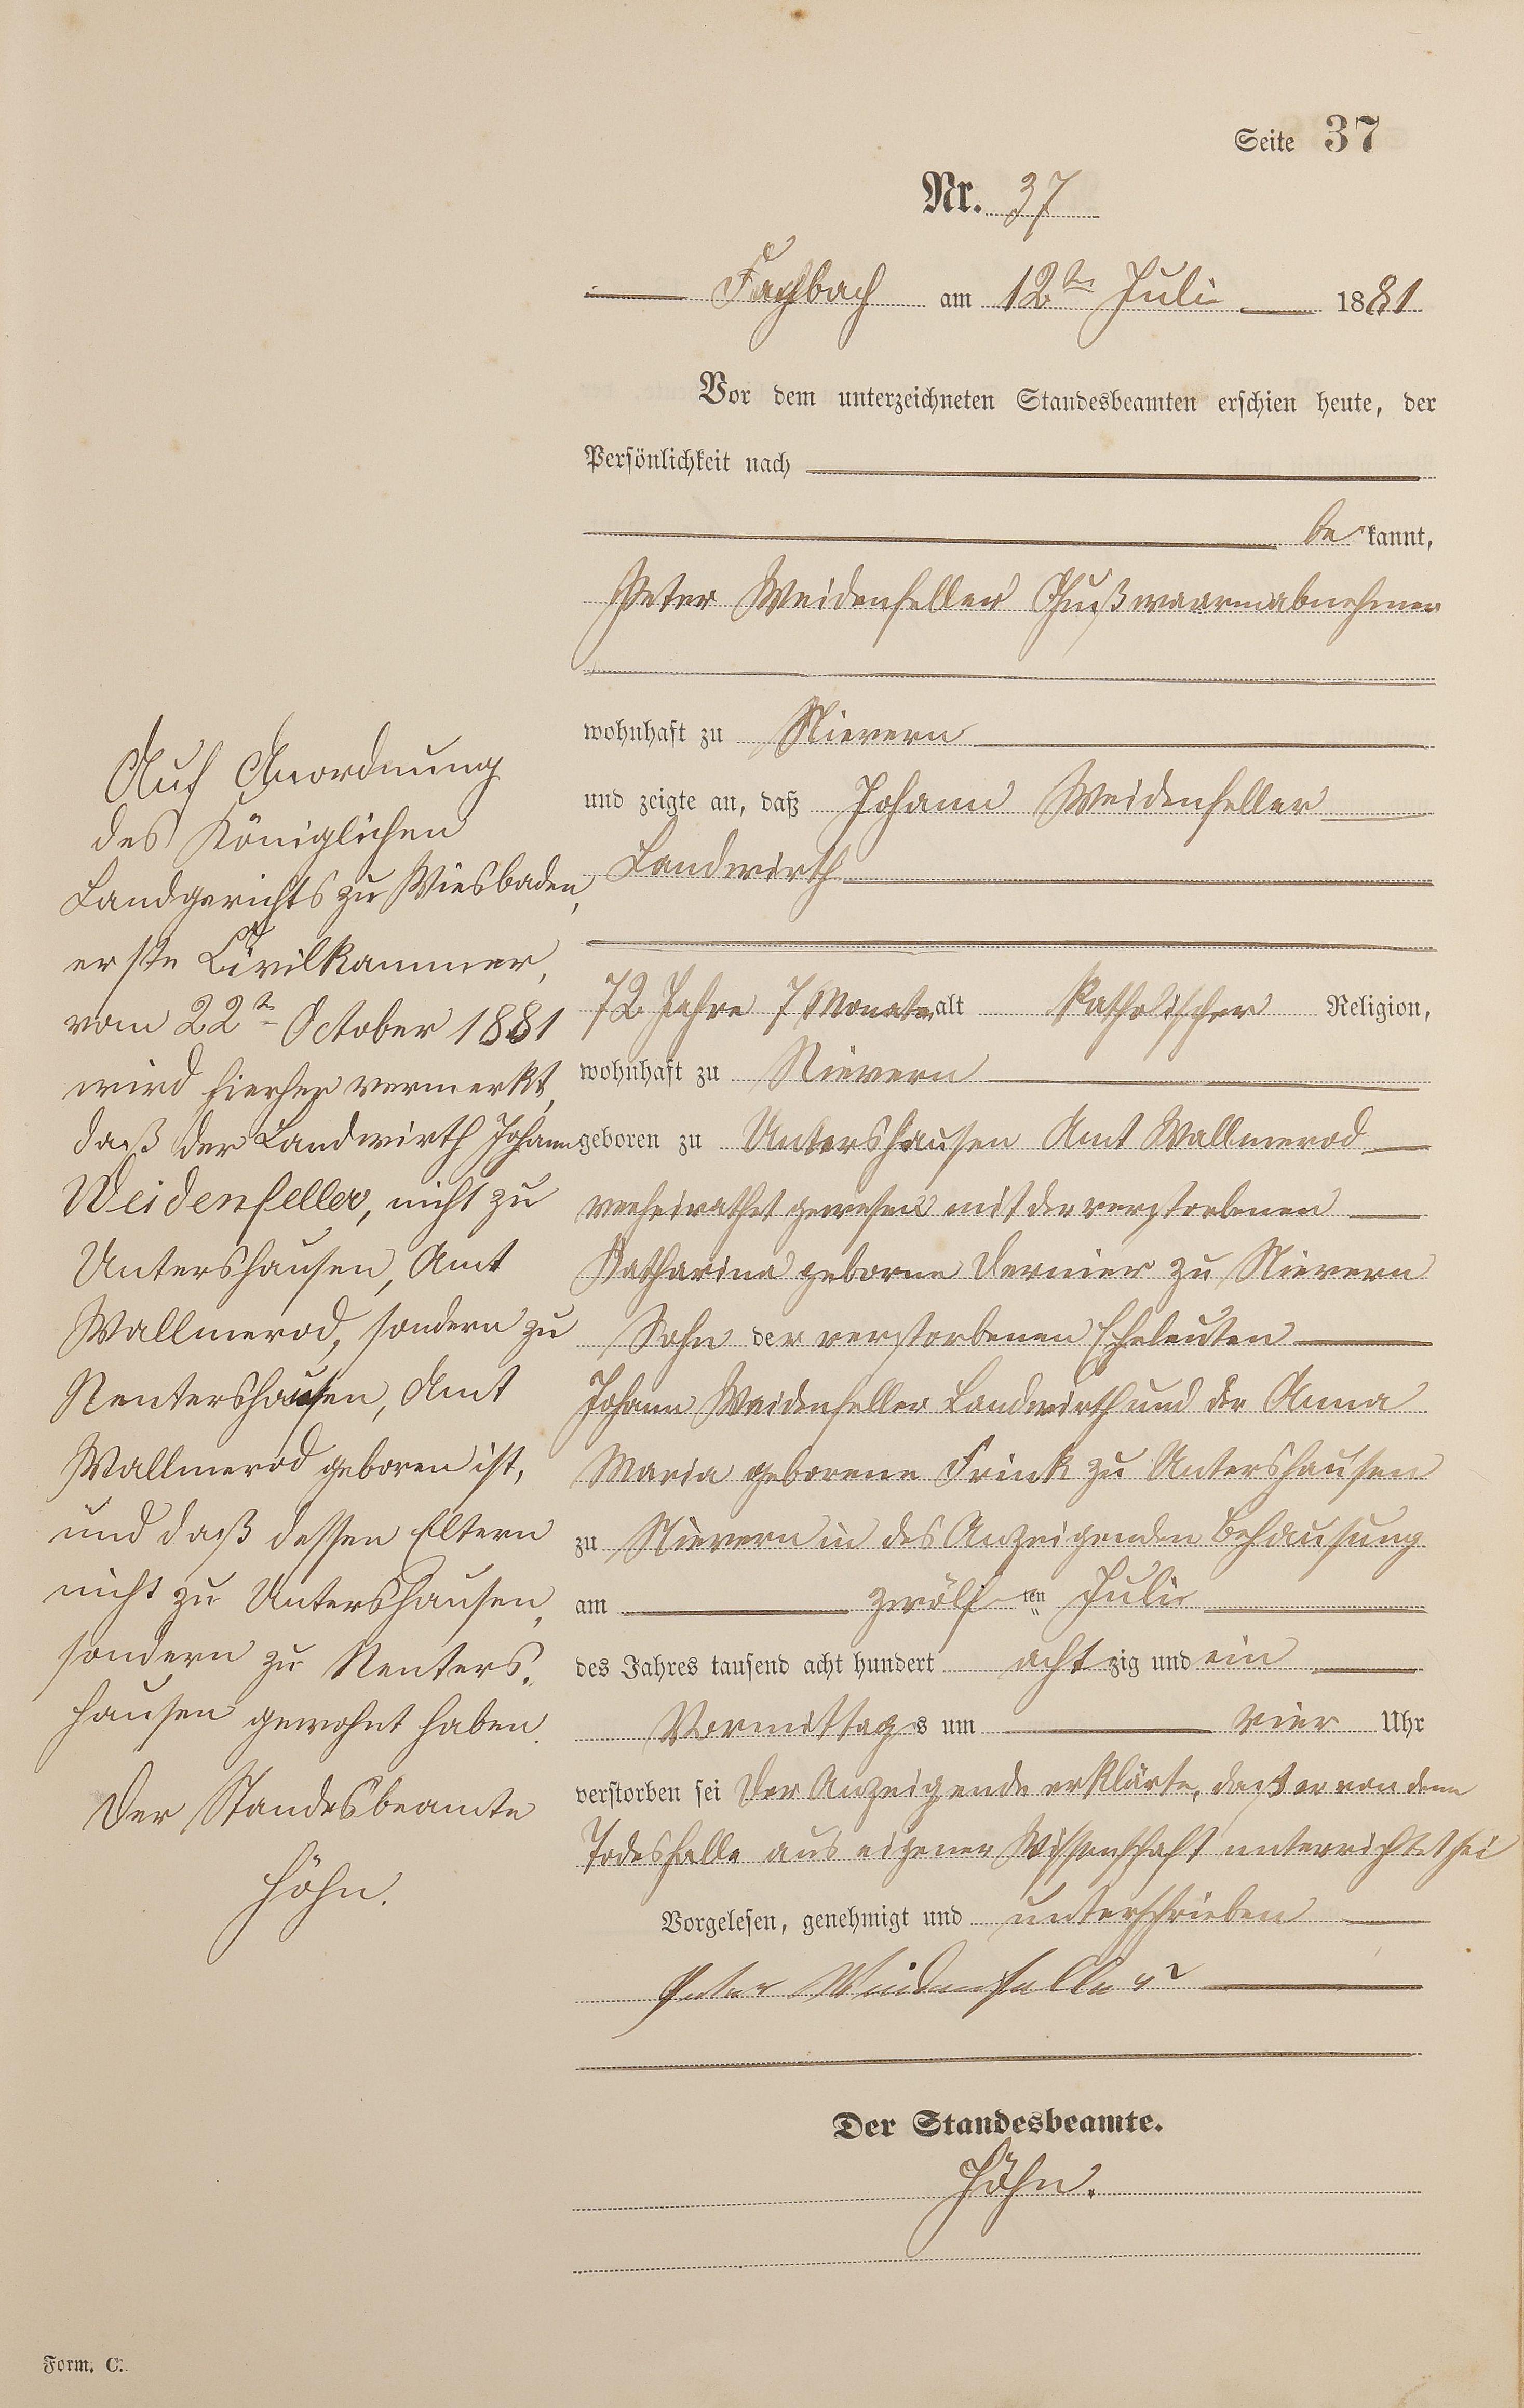 Seite 37
Nr. 37
Fachbach am 12ten Juli 1881
Vor dem unterzeichneten Standesbeamten erschien heute, der
Persönlichkeit nach
be kannt,
Peter Weidenfeller Gußwaarenabnehmer
wohnhaft zu Nievern
und zeigte an, daß Johann Weidenfeller
Landwirth
72 Jahre 7 Monate alt katholischer Religion,
wohnhaft zu Nievern
geboren zu Untershausen Amt Wallmerod
verheirathet gewesen mit der verstorbenen
Katharina geborne Dernier zu Nievern
Sohn der verstorbenen Eheleuten
Johann Weidenfeller Landwirth und der Anna
Maria geborene Frink zu Untershausen
zu Nievern in des Anzeigenden Behausung
am zwölf ten Juli
des Jahres tausend acht hundert acht zig und ein
Vormittag s um vier Uhr
verstorben sei Der Anzeigende erklärte, daß er von dem
Todesfalle aus eigener Wissenschaft unterrichtet sei
Vorgelesen, genehmigt und unterschrieben
Peter Weidenfeller
Der Standesbeamte.
Höhn.
Auf Anordnung
des Königlichen
Landgerichts zu Wiesbaden,
erste Civilkammer,
vom 22ten October 1881
wird hierher vermerkt,
daß der Landwirth Johann
Weidenfeller, nicht zu
Untershausen, Amt
Wallmerod, sondern zu
Nentershausen, Amt
Wallmerod geboren ist,
und daß dessen Eltern
nicht zu Untershausen,
sondern zu Nenters-
hausen gewohnt haben.
Der Standesbeamte
Höhn.
Form. C.